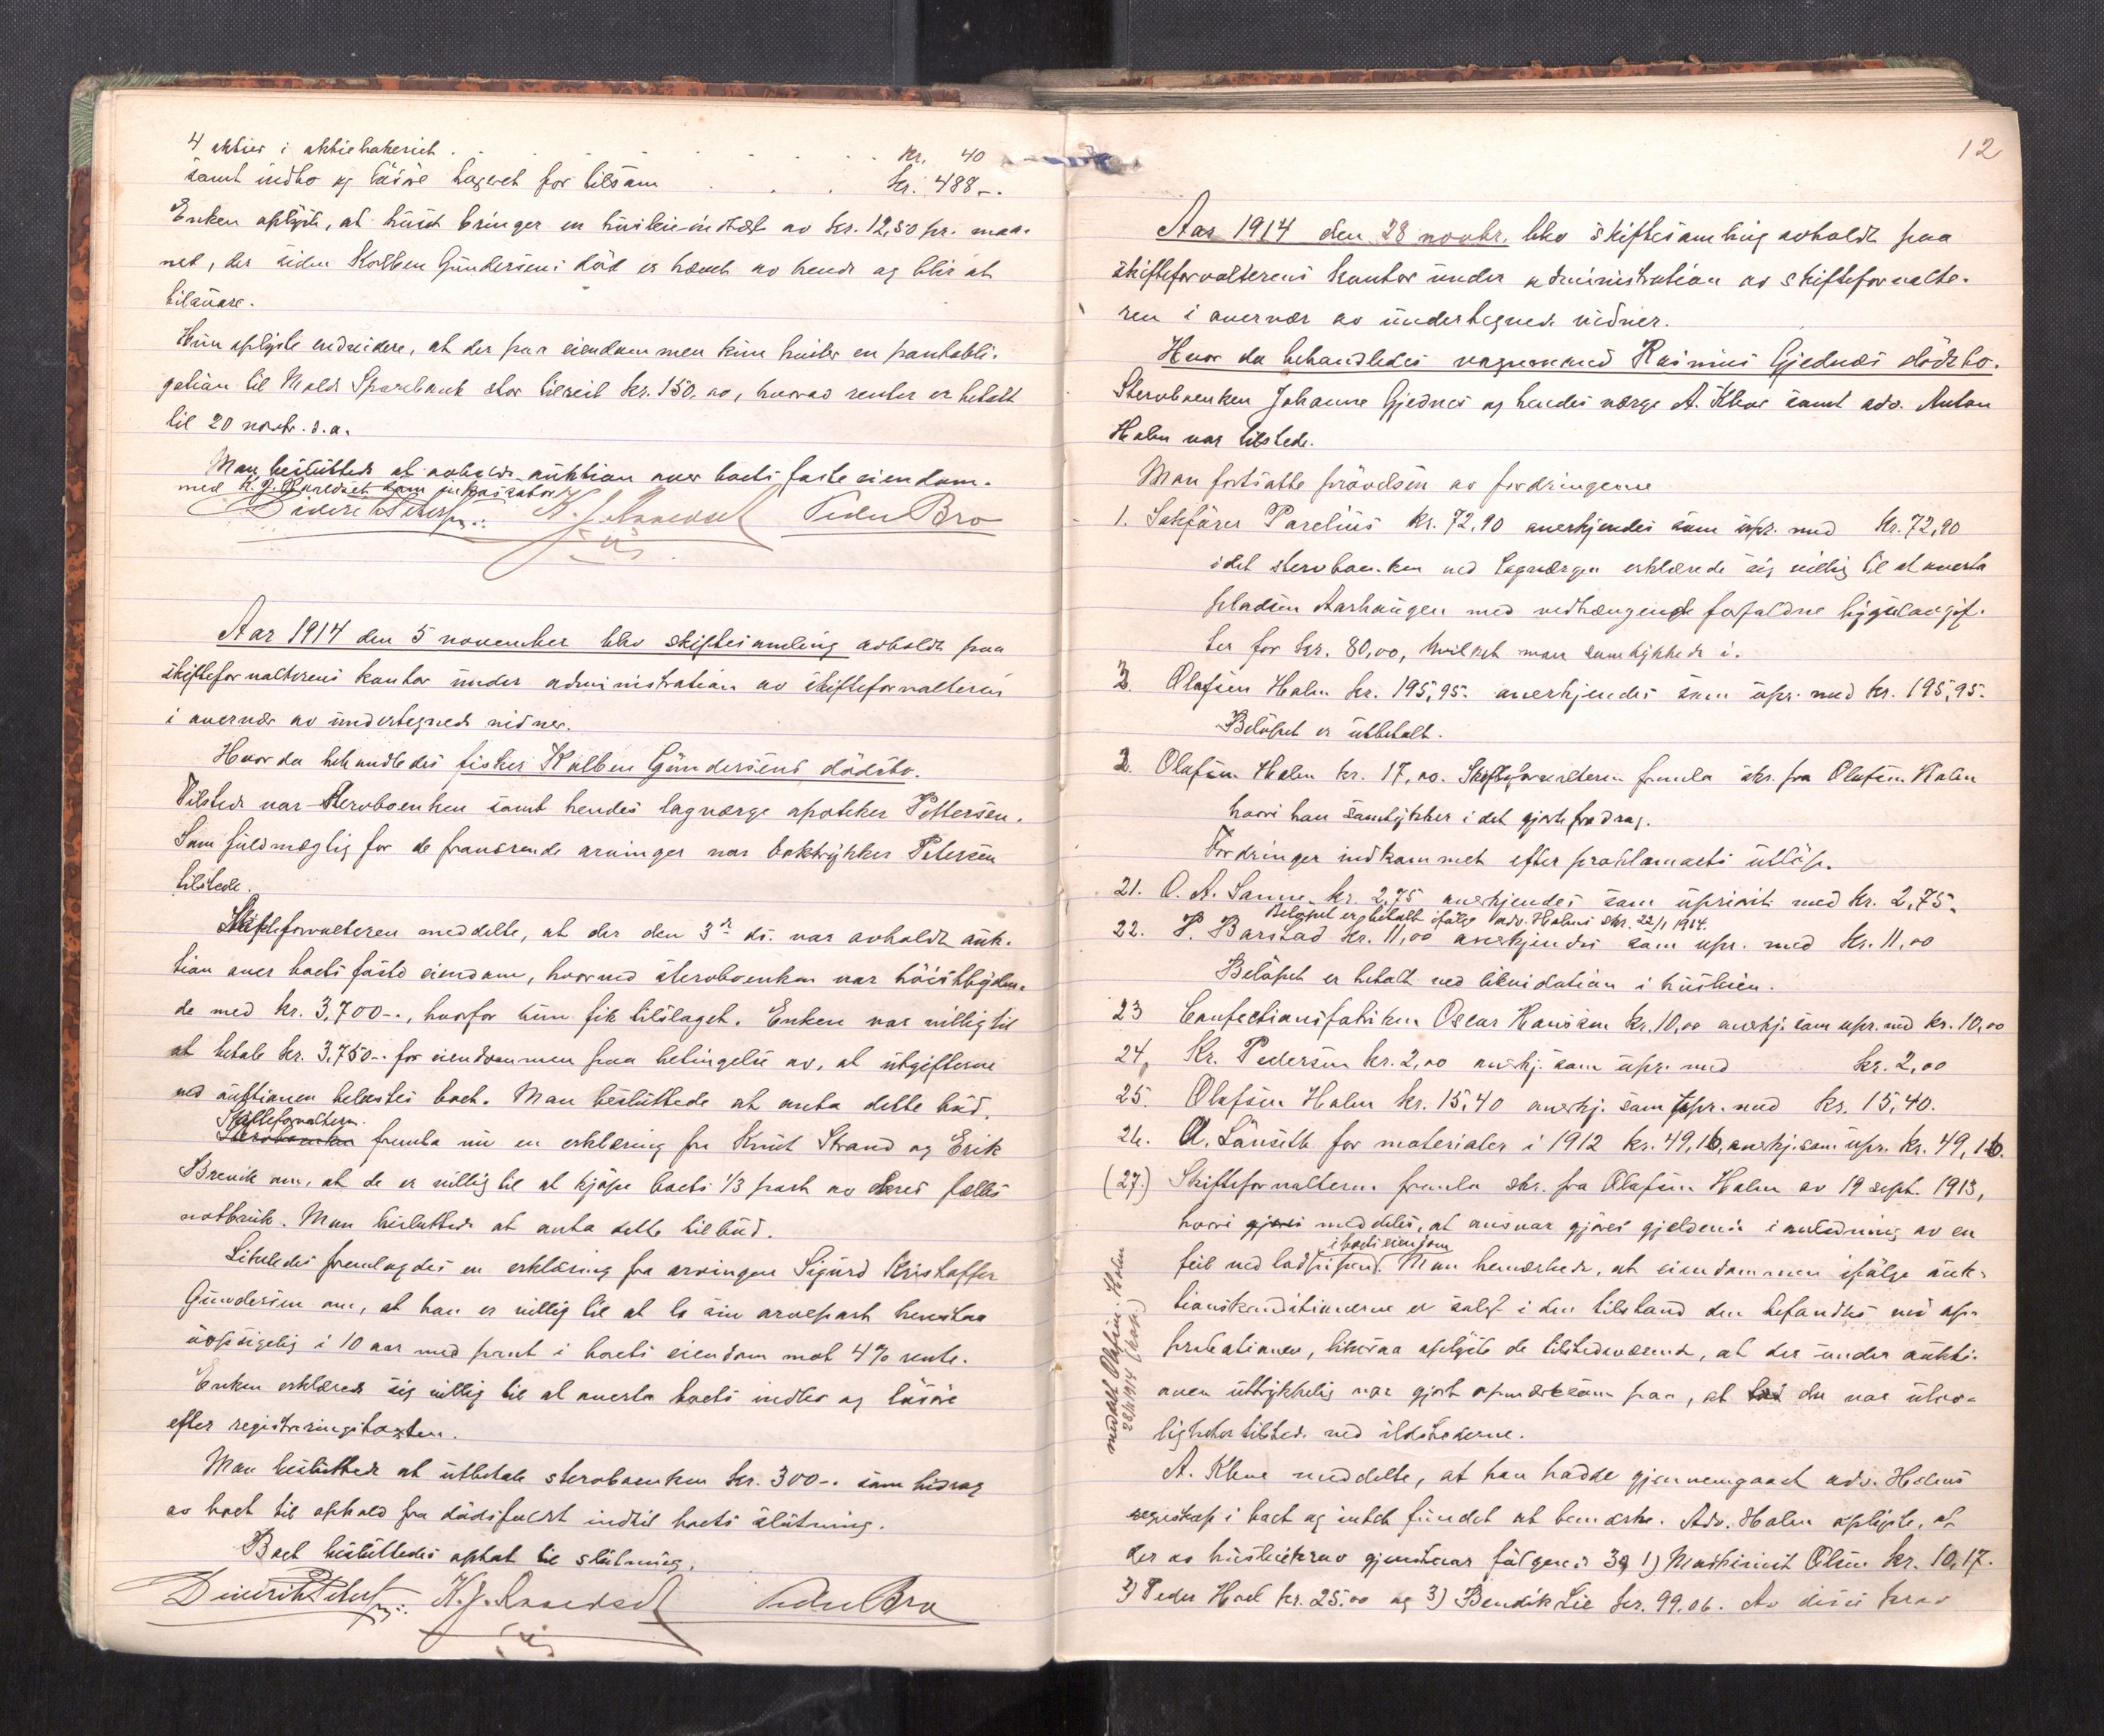 4 aktier i aktiebakeriet . . . . . . . . kr. 40
samt indbo og løsøre taxeret for tilsam . . . kr. 488-.
Enken oplyste, at huset bringer en husleieindtægt av kr. 12,50 pr. maa-
ned, der siden Kolben Gundersens død er hævet av hende og blir at
tilsvare.
Hun oplyste endvidere, at der paa eiendommen kun hviler en pantobli-
gation til Molde Sparebank stor tilrest kr. 150,00, hvorav renter er betalt
til 20 novbr. d.a.
Man besluttede at avholde auktion over boets faste eiendom.
med K. J. som inkassator
Diderik Petersen K. J. Peder Bro
Aar 1914 den 5 november blev skiftesamling avholdt paa
skifteforvalterens kontor under administration av skifteforvalteren
i overvær av undertegnede vidner.
Hvor da behandledes fisker Kolben Gundersens dødsbo.
Tilstede var stervboenken samt hendes lagverge apoteker Pettersen.
Som fuldmægtig for de fraværende arvinger var boktrykker Petersen
tilstede.
Skifteforvalteren meddelte, at der den 3de ds. var avholdt auk-
tion over boets faste eiendom, hvorved stervboenken var høistbyden-
de med kr. 3,700-., hvorfor hun fik tilslaget. Enken var villig til
at betale kr. 3,750-. for eiendommen paa betingelse av, at utgifterne
ved auktionen belastes boet. Man besluttede at anta dette bud.
Skifteforvalteren
Stervboenken fremla nu en erklæring fra Knut Strand og Erik
Brevik om, at de er villig til at kjøpe boets 1/3 part av deres fælles
notbruk. Man besluttede at anta dette tilbud.
Likeledes fremlagdes en erklæring fra arvingen Sigurd Kristoffer
Gundersen om, at han er villig til at la sin arvepart henstaa
uopsigelig i 10 aar med pant i boets eiendom mot 4% rente.
Enken erklærede sig villig til at overta boets indbo og løsøre
efter registreringstaxten.
Man besluttede at utbetale stervboenken kr. 300-. som bidrag
av boet til ophold fra dødsfaldet indtil boets slutning.
Boet besluttedes optat til slutning.
Diderik Petersen K. J. Peder Bro
12
Aar 1914 den 28 novbr. blev skiftesamling avholdt paa
skifteforvalterens kontor under administration av skifteforvalte-
ren i overvær av undertegnede vidner.
Hvor da behandledes vognmand Rasmus Gjednes dødsbo.
Stervboenken Johanne Gjednes og hendes verge A. Kleve samt adv. Anton
Holm var tilstede.
Man fortsatte prøvelsen av fordringerne
1. Sakfører Parelius kr. 72,90 anerkjendes som upr. med kr. 72,90
idet stervboenken med lagvergen erklærede sig villig til at overta
pladsen Aarhaugen med vedhængende forfaldne bygselavgif-
ter for kr. 80,00, hvilket man samtykkede i.
2. Olafsen Holm kr. 195,95. anerkjendes som upr. med kr. 195,95.
Beløpet er utbetalt.
3. Olafsen Holm kr. 17,00. Skifteforvalteren fremla skr. fra Olafsen Holm
hvori han samtykker i det gjorte fradrag.
Fordringer indkommet efter proklamaets utløp.
21. O. A. Sanne kr. 2,75 anerkjendes som uprivit. med kr. 2,75.
Beløpet er betalt ifølge adv. Holms skr. 22/1 1914.
22. P. Barstad kr. 11,00 anerkjendes som upr. med kr. 11,00
Beløpet er betalt ved likvidation i husleien.
23 Confectionsfabriken Oscar Hansen kr. 10,00 anerkj. som upr. med kr. 10,00
24. Kr. Pedersen kr. 2,00 anerkj. som upr. med kr. 2,00
25. Olafsen Holm kr. 15,40 anerkj. som upr. med kr. 15,40.
26. A. Lønseth for materialer i 1912 kr. 49,16, anerkj. som upr. kr. 49,16.
(27.) Skifteforvalteren fremla skr. fra Olafsen Holm av 19 sept. 1913,
hvori gjøres meddeles, at ansvar gjøres gjeldende i anledning av en
i boets eiendom
feil ved Man bemerkede, at eiendommen ifølge auk-
tionskonditionerne er solgt i den tilstand den befandtes ved ap-
probationen, likesaa oplyste de tilstedeværende, at der under aukti-
onen uttrykkelig var gjort opmerksom paa, at der var ulov-
ligheter tilstede ved ildstederne.
A. Kleve meddelte, at han hadde gjennemgaaet adv. Holms
regnskap i boet og intet fundet at bemerke. Adv. Holm oplyste, at
der av husleiekrav gjenstaar følgende 3, 1) Maskinist Olsen kr. 10,17.
2) Peder Hoel kr. 25,00 og 3) Bendik Lie kr. 99,06. Av disse krav
meddelt Olafsen Holm
28/11 1914